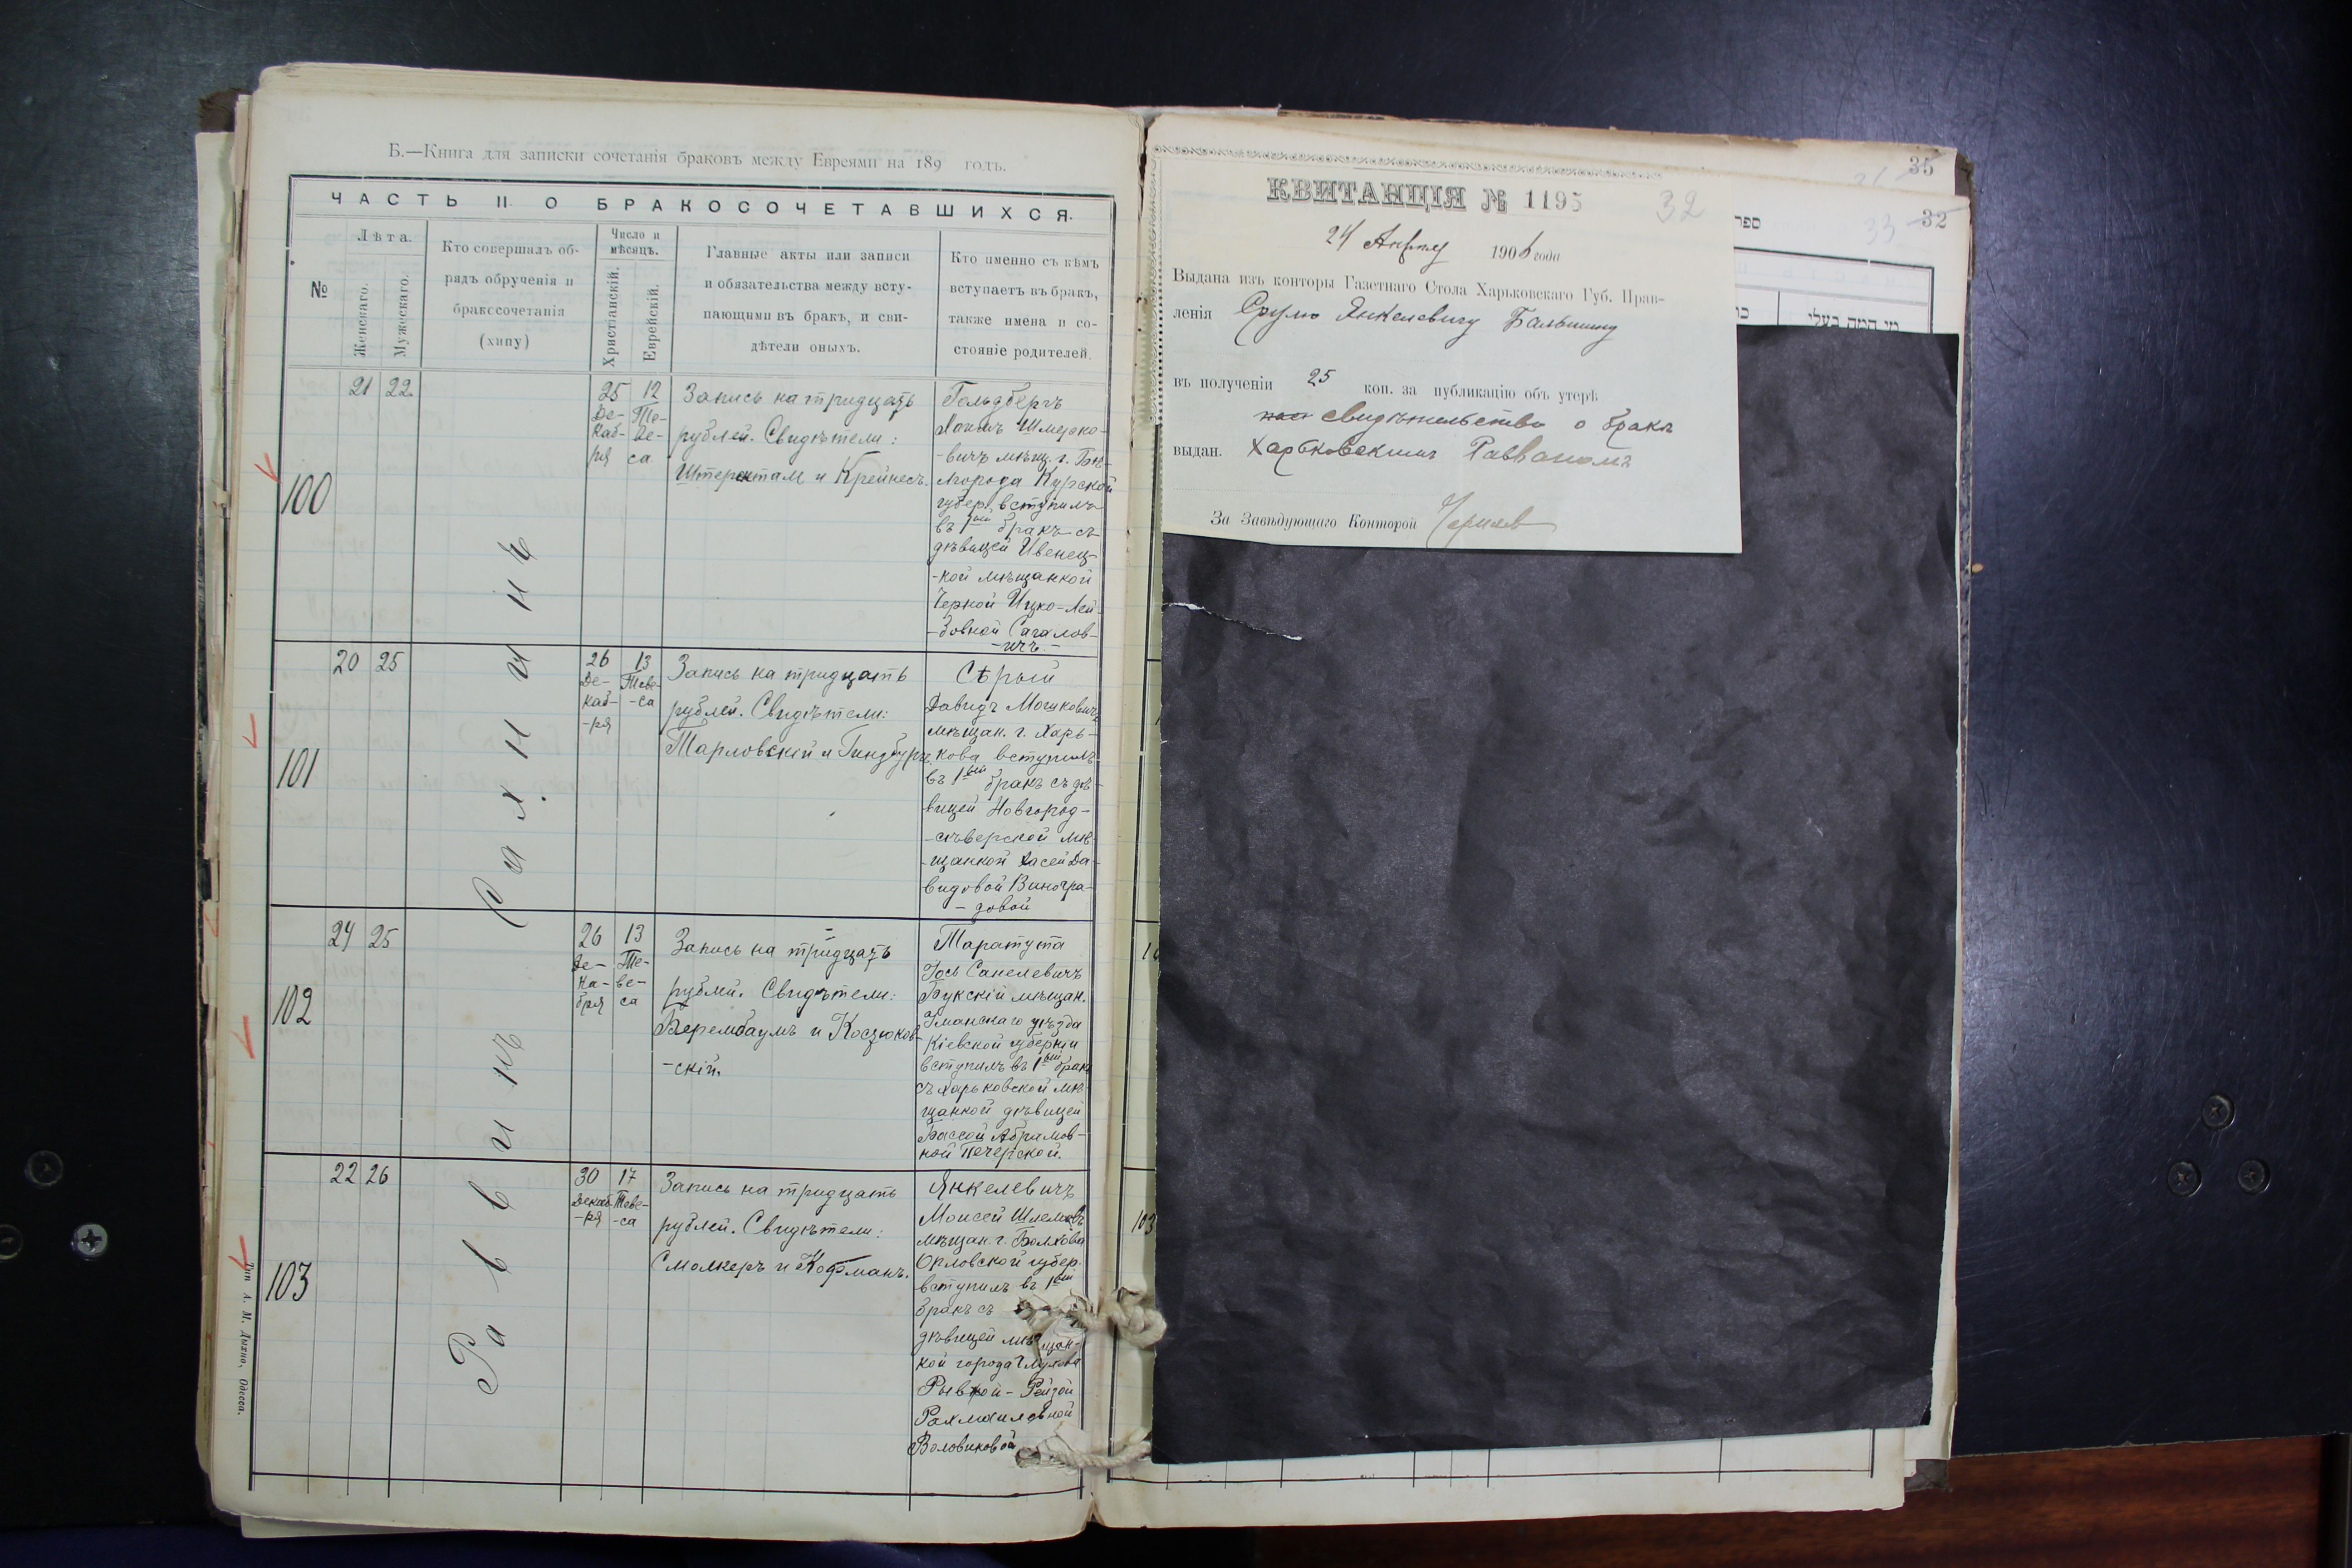 Б.—Книга для записки сочетанія браковъ между Евреями на 189 годъ.
ЧАСТЬ II О БРАКОСОЧЕТАВШИХСЯ.
№
Лѣта.
Женскаго.
Мужескаго.
Кто совершалъ об-
рядъ обрученія и
бракосочетанія
(хипу)
Число и
мѣсяцъ.
Христіанскій.
Еврейскій.
Главные акты или записи
и обязательства между всту-
пающими въ бракъ, и сви-
дѣтели оныхъ.
Кто именно съ кѣмъ
вступаетъ въ бракъ,
также имена и со-
стояніе родителей.
Раввинъ Сахнинъ
100
21
22
25
Де-
каб-
ря
12
Те-
ве-
са
Запись на тридцать
рублей. Свидѣтели:
и Крейнесъ.
Гольдбергъ
Хонъ Шмерко-
-вичъ мѣщ. г. Бѣ-
лгорода Курской
губер. вступилъ
въ 1ый бракъ съ
дѣвицей Ивенец-
-кой мѣщанкой
Черной Ицко-Лей-
-зовной Сагалов-
-ичъ.-
101
20
25
26
Де-
каб-
-ря
13
Теве-
-са
Запись на тридцать
рублей. Свидѣтели:
Тарловскій и Гинзбургъ.
Сѣрый
Давидъ Мошковичъ
мѣщан. г. Харь-
кова вступилъ
въ 1ый бракъ съ дѣ-
вицей Новгород-
-сѣверской мѣ-
-щанкой Хасей Да-
видовой Виногра-
-довой
102
24
25
26
Де-
ка-
бря
13
Те-
ве-
са
Запись на тридцать
рублей. Свидѣтели:
Беренбаумъ и Косзюков-
-скій.
Таратута
Іось Санелевичъ
Букскій мѣщан.
Уманскаго уѣзда
Кіевской губерніи
вступилъ въ 1ый бракъ
съ Харьковской мѣ-
щанкой дѣвицей
Бассой Абрамов-
ной Печерской.
103
22
26
30
Декаб-
-ря
17
Теве-
-са
Запись на тридцать
рублей. Свидѣтели:
Смолкеръ и Кофманъ.
Янкелевичъ
Моисей Шлемовъ
мѣщан. г. Болхова
Орловской губер.
вступилъ въ 1ый
бракъ съ
дѣвицей мѣщан-
кой города Глухова
Рывкой-Рейзой
Рахмиилевной
Воловиковой
Тип А. М. Дыхно, Одесса.
КВИТАНЦІЯ № 1195
32
24 1906 года
Выдана изъ конторы Газетнаго Стола Харьковскаго Губ. Прав-
ленія Срулю Янкелевичу
въ полученіи 25 коп. за публикацію объ утерѣ
свидѣтельства о бракѣ
выдан. Харьковскимъ Раввиномъ
За Завѣдующаго Конторой
35
33 32
ספר
מי המה בעלי
103